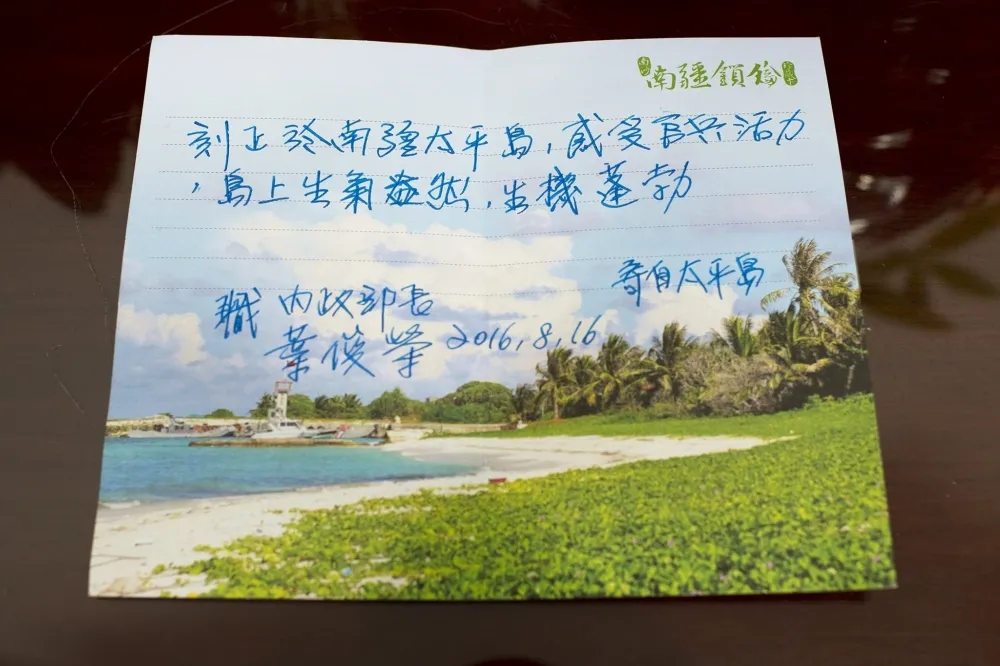 南疆鎖鑰
刻正於南疆太平島，感受官兵活力
，島上生氣盎然，生機蓬勃
寄自太平島
職 內政部長
葉俊榮 2016.8.16